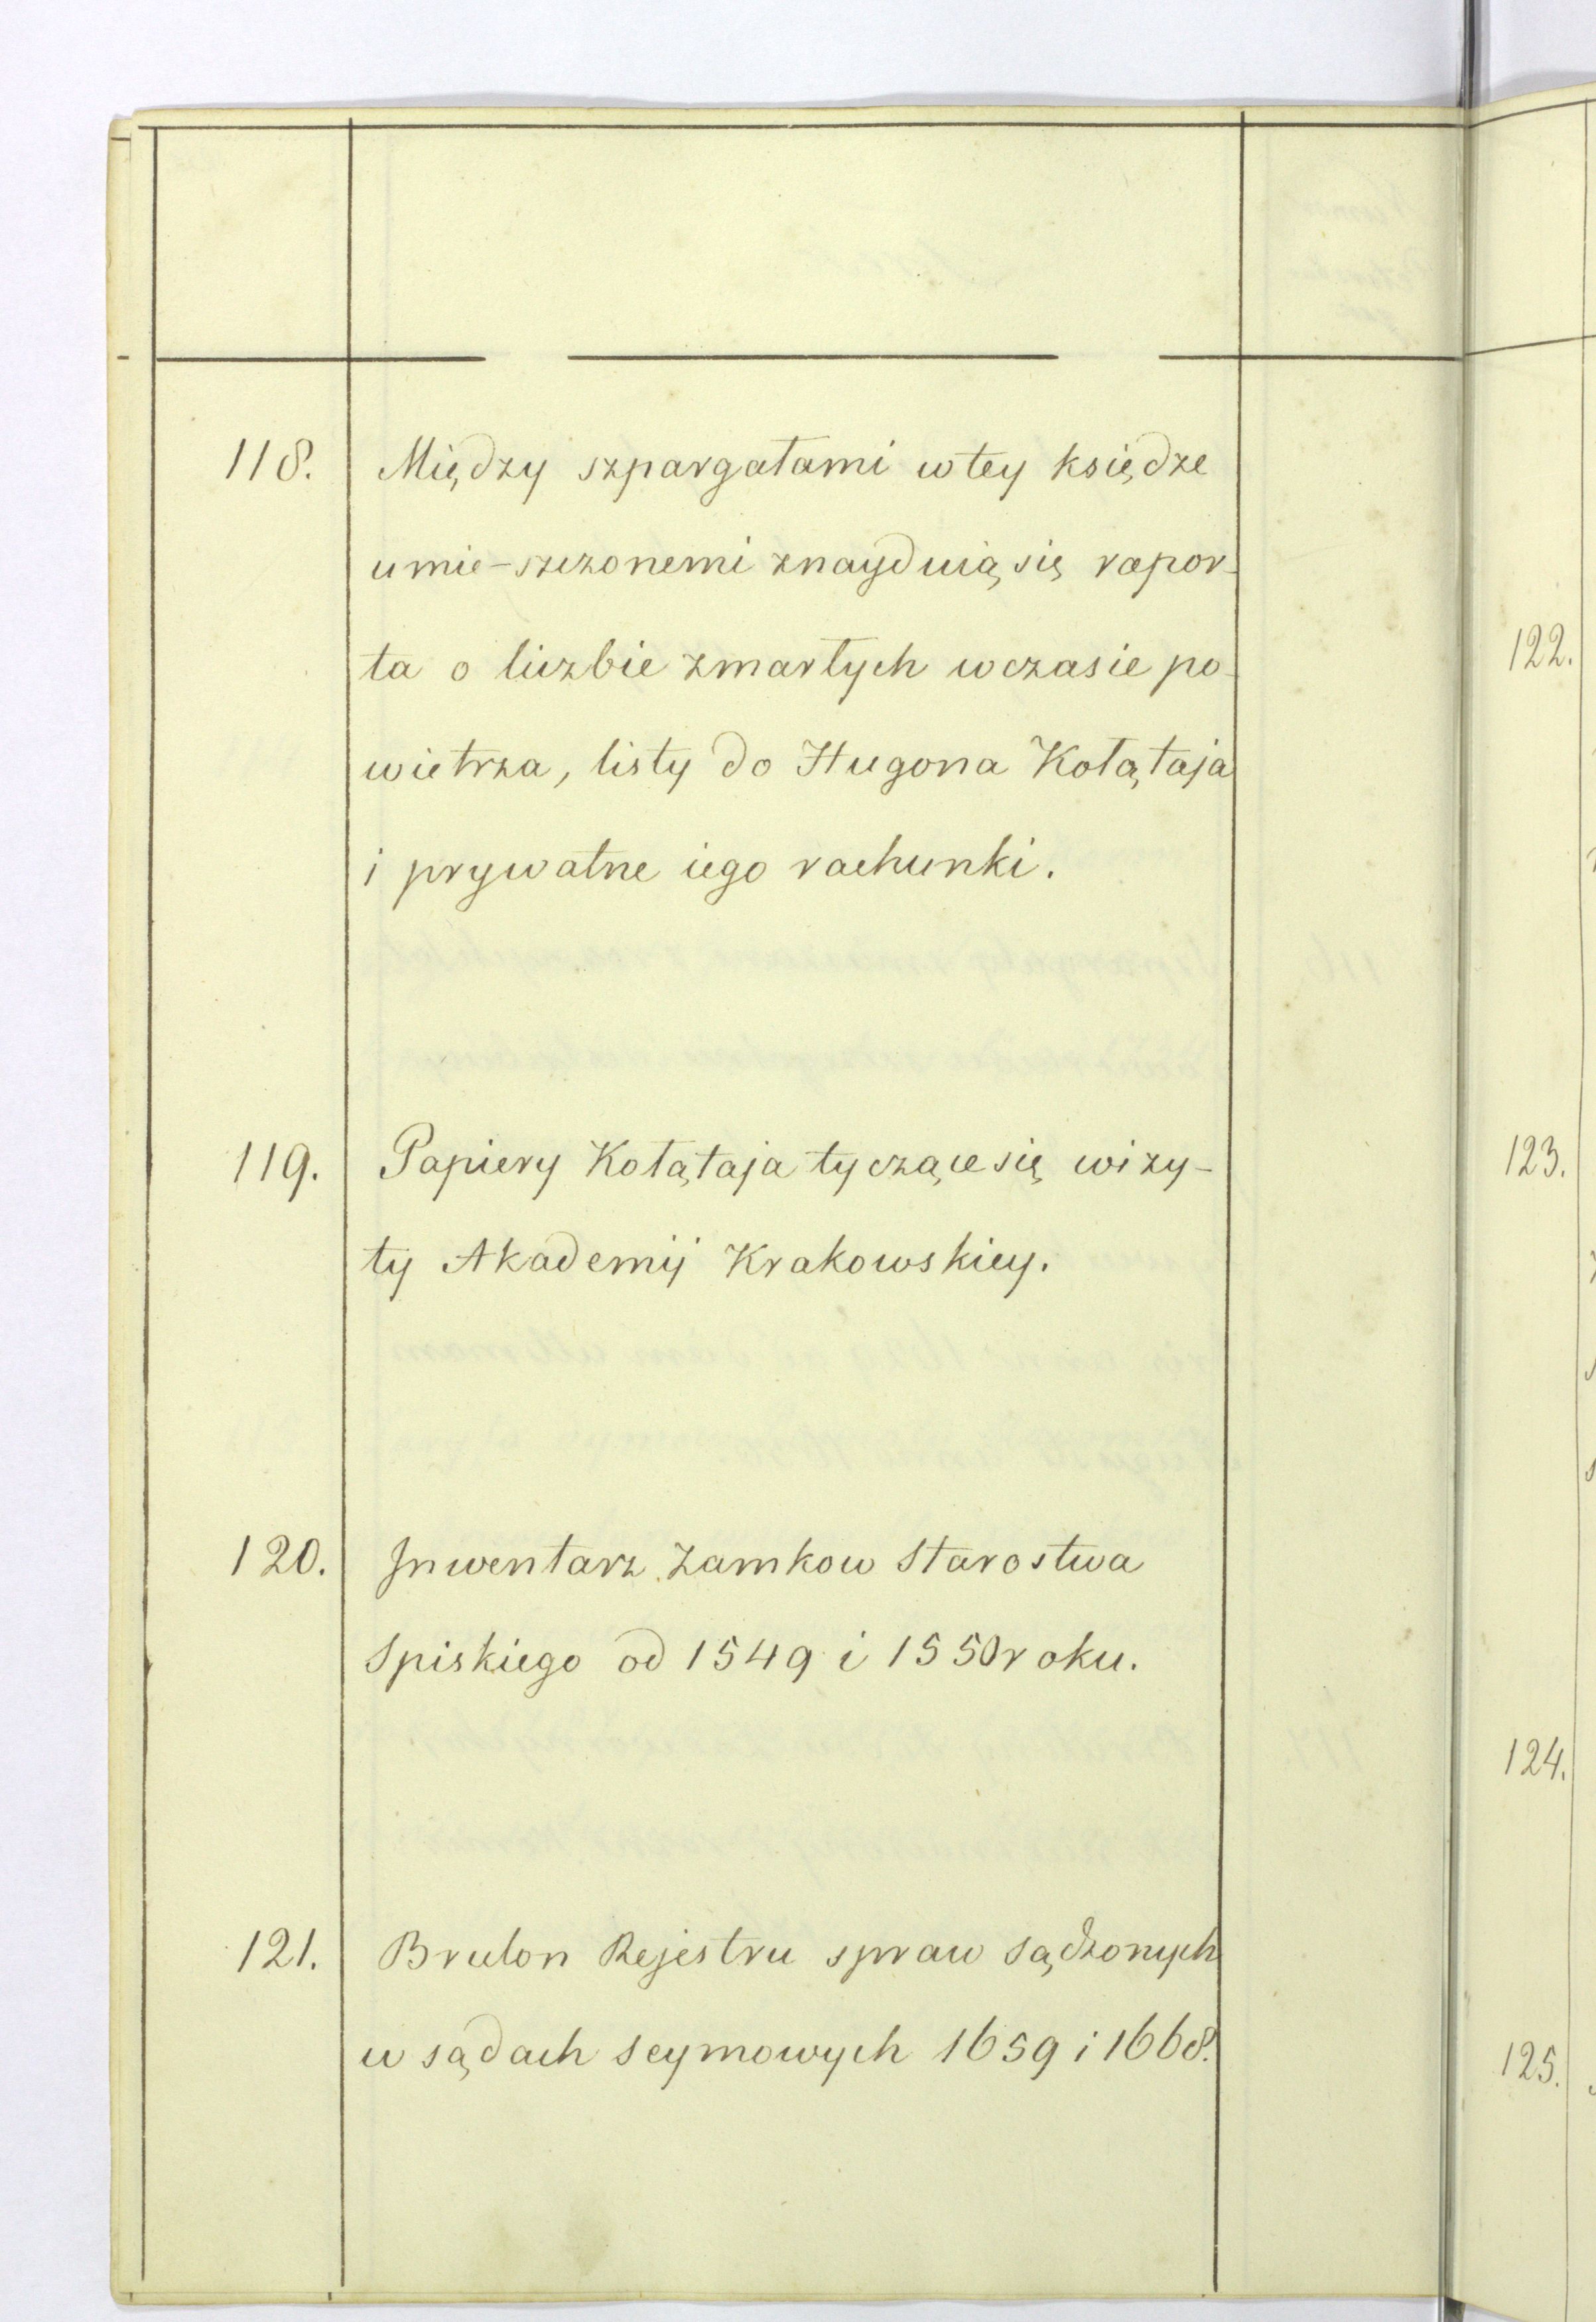 118. Między szpargałami w tey księdze
umie-szczonemi znayduią się rapor-
ta o liczbie zmarłych w czasie po-
wietrza, listy do Hugona Kołątaja
i prywatne iego rachunki.
119. Papiery Kołątaja tyczące się wizy-
ty Akademij Krakowskiey.
120. Inwentarz Zamkow Starostwa
Spiskiego od 1549 i 1550 roku.
121. Brulon Rejestru spraw sądzonych
w sądach seymowych 1659 i 1668.
122.
123.
124.
125.